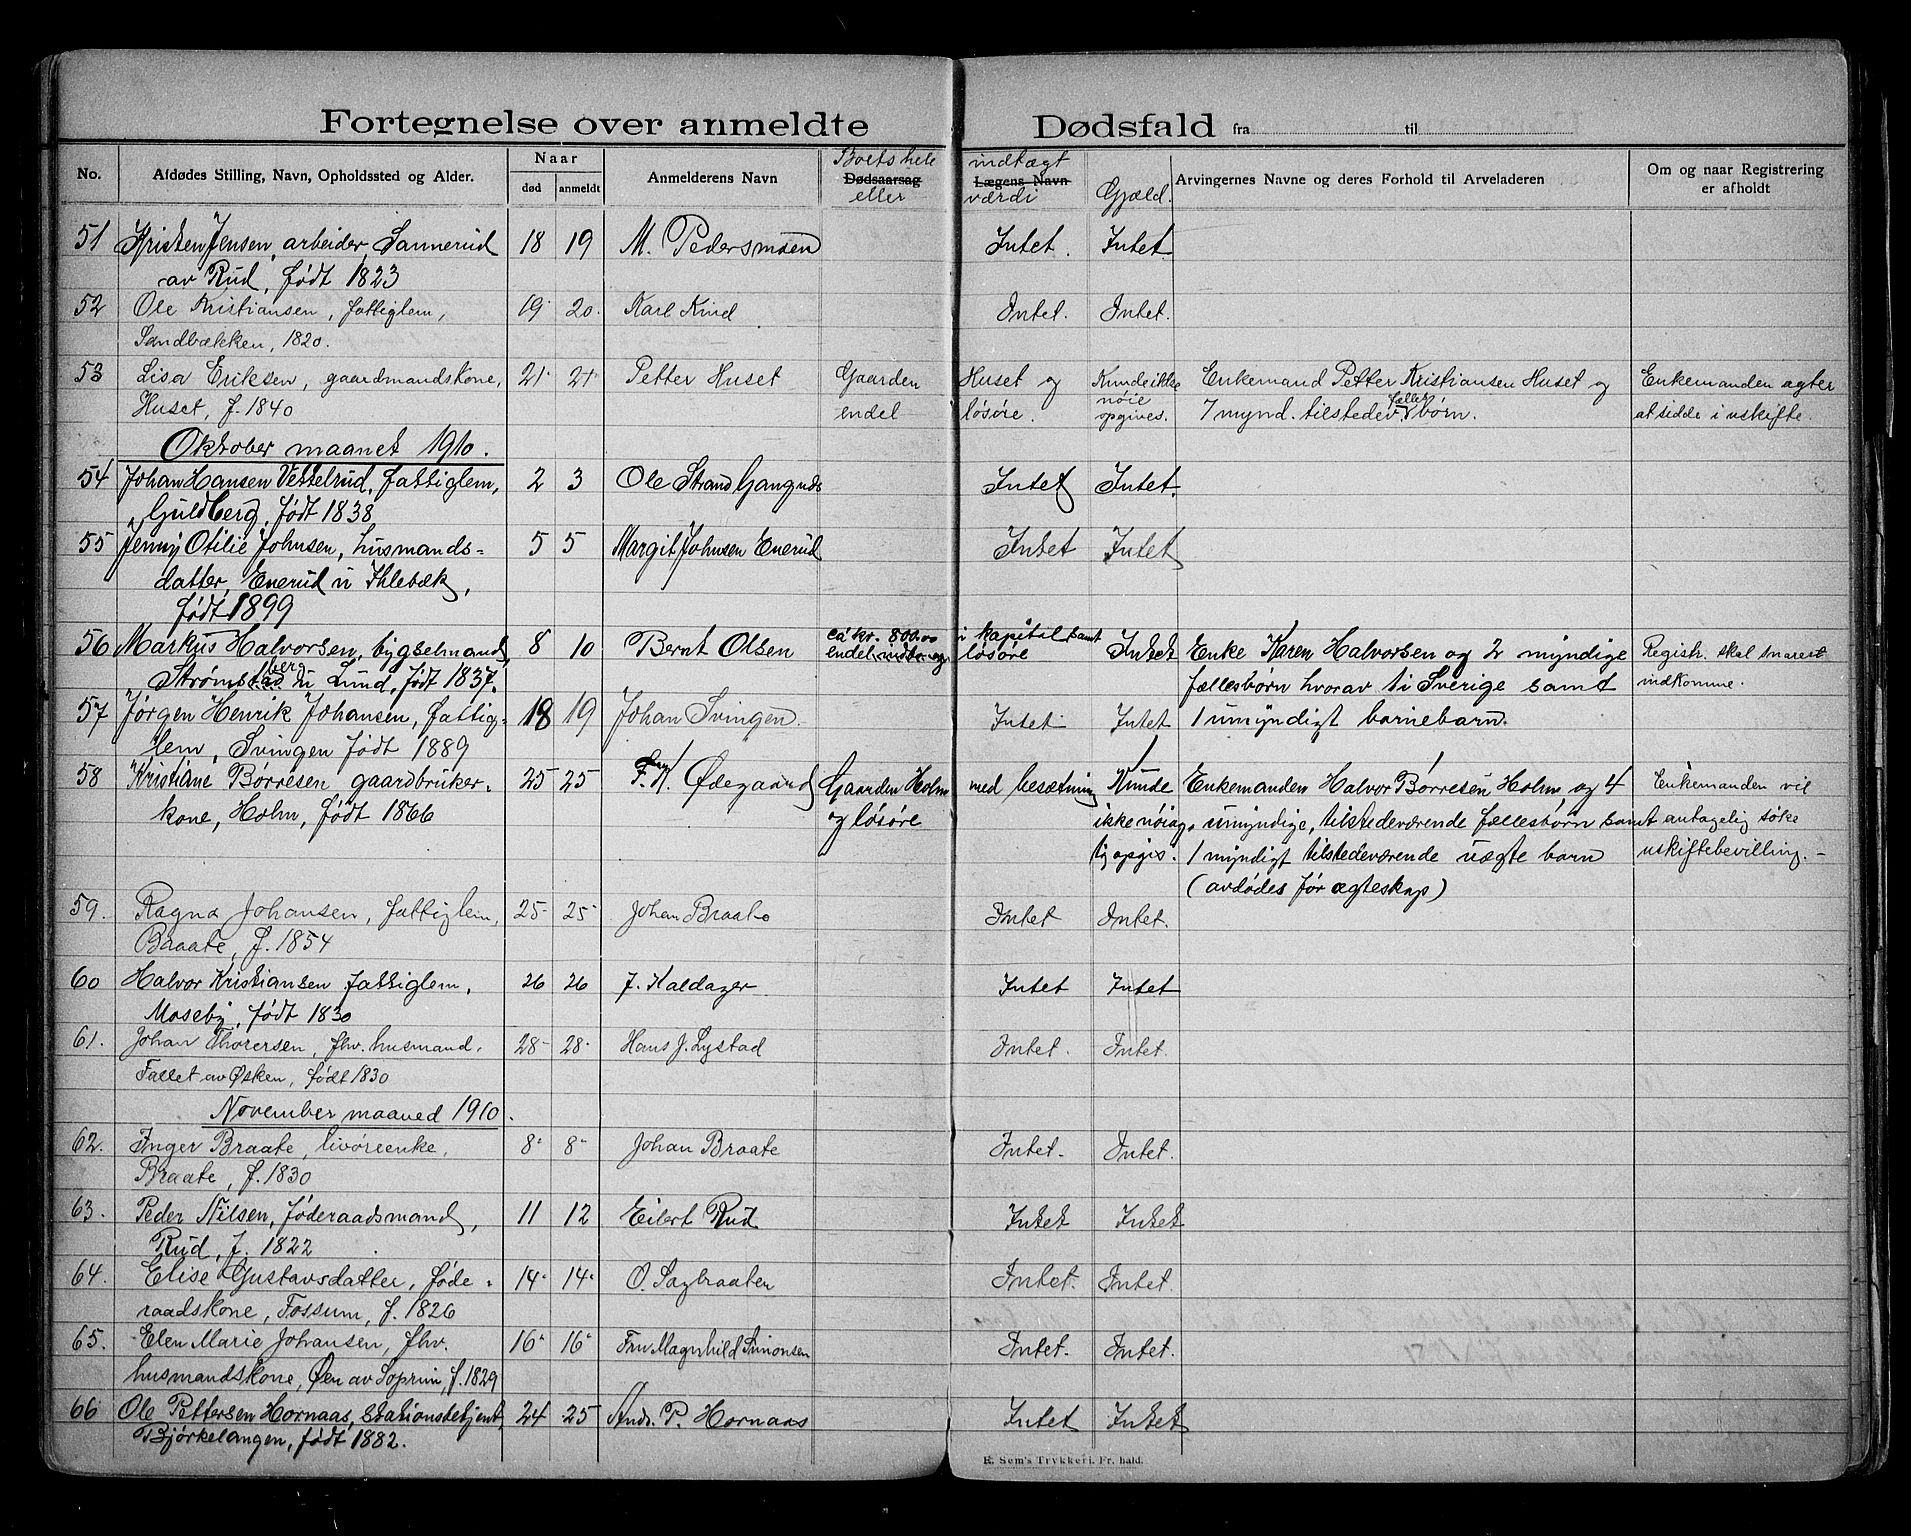 Fortegnelse over anmeldte Dødsfald fra til
No. Afdødes Stilling, Navn, Opholdssted og Alder. Naar død anmeldt Anmelderens Navn Boets hele Dødsaarsag eller indtægt Lægens Navn værdi Gjæld. Arvingernes Navne og deres Forhold til Arveladeren Om og naar Registrering er afholdt
51 Kristen Jensen, arbeider, Sannerud 18 19 M. Pedersmoen Intet. Intet.
av Rud, født 1823
52 Ole Kristiansen, fattiglem, 19 20 Karl Kind Intet. Intet.
Sandbækken, 1820.
53 Lisa Eriksen, gaardmandskone, 21 21 Petter Huset Gaarden Huset og Kunde ikke Enkemand Petter Kristiansen Huset og Enkemanden agter
Huset, f. 1840 endel løsøre. nøie opgives. 7 mynd. tilstedev. fælles børn. at sidde i uskifte.
Oktober maanet 1910.
54 Johan Hansen Vestelrud, fattiglem, 2 3 Ole Strand Intet Intet.
Guldberg, født 1838
55 Jenny Otilie Johnsen, husmands- 5 5 Margit Johnsen Enerud Intet Intet
datter, Enerud u Ihlebæk,
født 1899
56 Markus Halvorsen, bygselmand 8 10 Bernt Olsen ca kr. 800.00 i kapital samt Intet Enke Karen Halvorsen og 2 myndige Registr. skal snarest
Strømsberg u Lund, født 1837. endel indbo og løsøre fællesbørn hvorav ti Sverige samt indkomme.
57 Jørgen Henrik Johansen, fattig- 18 19 Johan Svingen. Intet Intet 1 umyndigt barnebarn.
lem, Svingen født 1889
58 Kristiane Børresen gaardbruker- 25 25 F. K. Ødegaard Gaarden Holm med besætning Kunde Enkemanden Halvor Børresen Holm og 4 Enkemanden vil
kone, Holm, født 1866 og løsøre ikke nøiag- umyndige, tilstedeværende fællesbørn samt antagelig søke
tig opgis. 1 myndigt tilstedeværende uægte barn uskiftebevilling. -
(avdødes før ægteskap)
59. Ragna Johansen, fattiglem, 25 25 Johan Braate Intet Intet.
Braate, f. 1854
60 Halvor Kristiansen fattiglem, 26 26 J. Kaldager Intet Intet
Moseby, født 1830
61. Johan Thorersen, fhv. husmand. 28 28 Hans J. Lystad Intet. Intet.
Fallet av Øsken, født 1830
November maaned 1910.
62. Inger Braate, livøreenke, 8 8 Johan Braate Intet. Intet.
Braate, f. 1830
63. Peder Nilsen, føderaadsmand, 11 12 Eilert Rud Intet Intet
Rud, f. 1822
64. Elise Gustavsdatter, føde- 14 14 O. Sagbraaten Intet. Intet.
raadskone, Fossum, f. 1826
65. Elen Marie Johansen, fhv. 16 16 Fru Magnhild Simonsen Intet. Intet.
husmandskone, Øen av Soprim, f. 1829
66 Ole Pettersen Hornaas, stationsbetjent 24 25 Andr. P. Hornaas Intet Intet
Bjørkelangen, født 1882.
E. Sem's Trykkeri. Fr. hald.